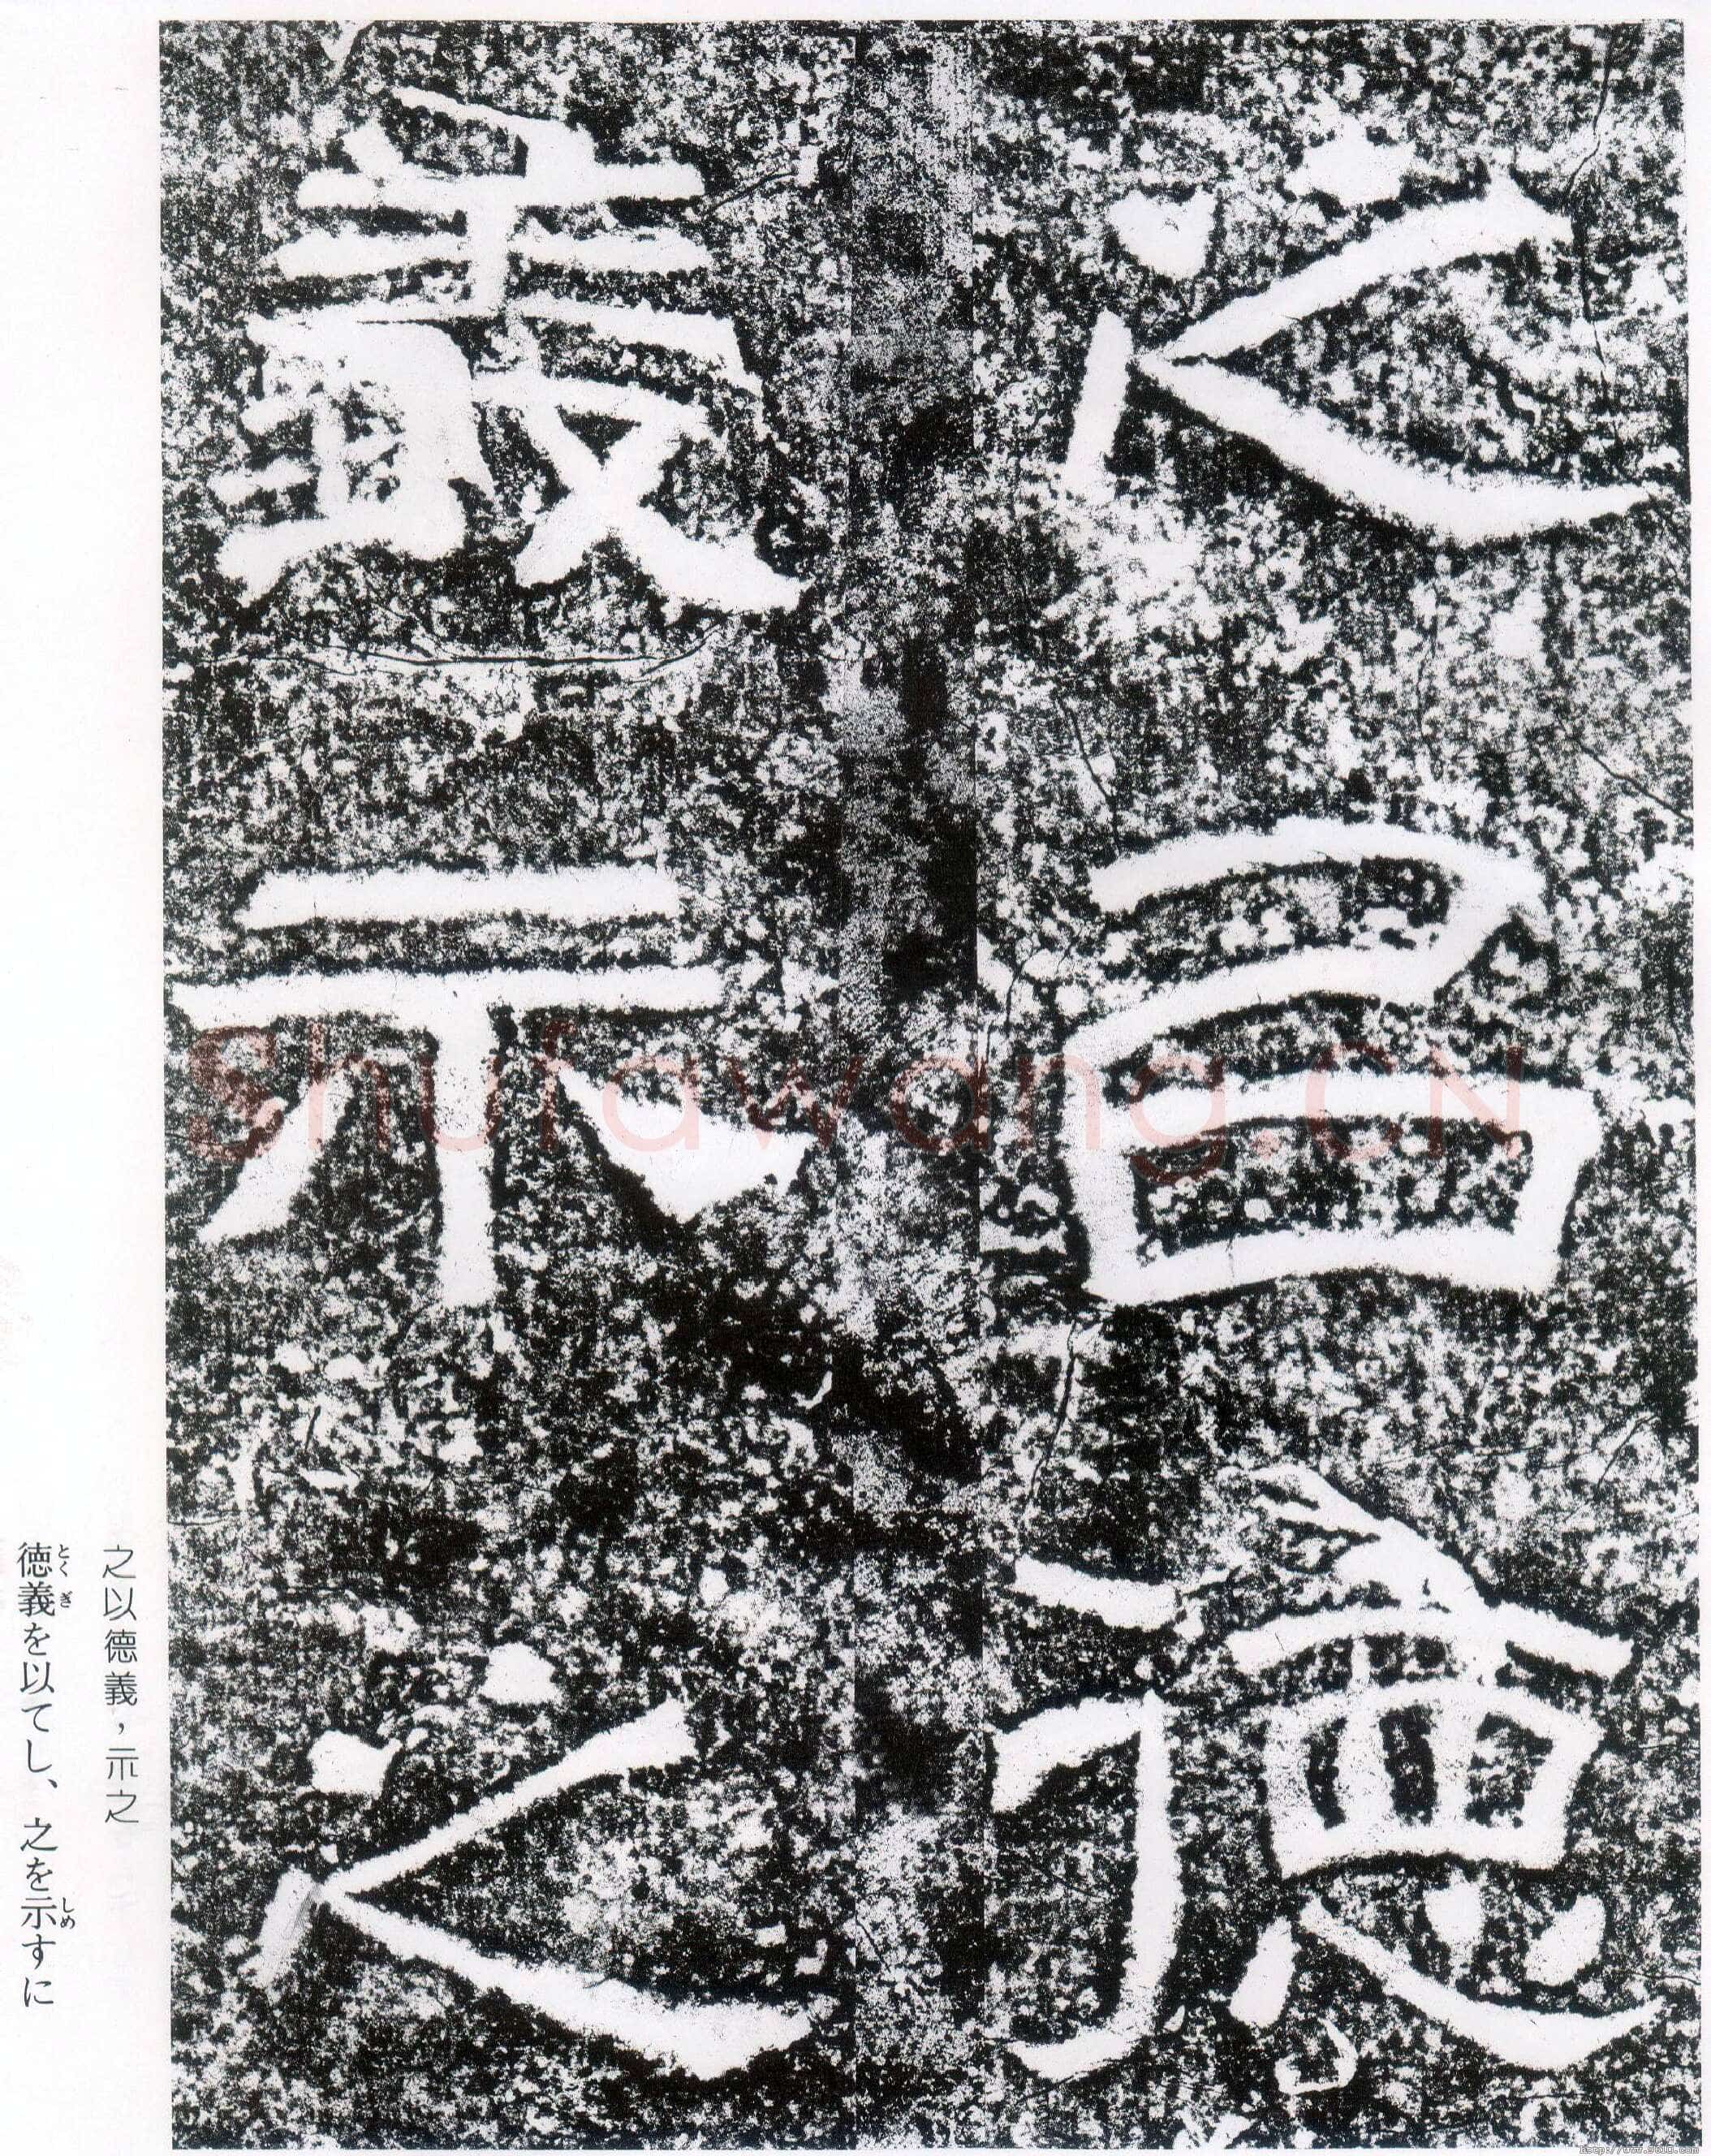 之㠯德
義示之
之以德義，示之
徳義を以てし、之を示すに
とく ぎ しめ
Shufawang.CN